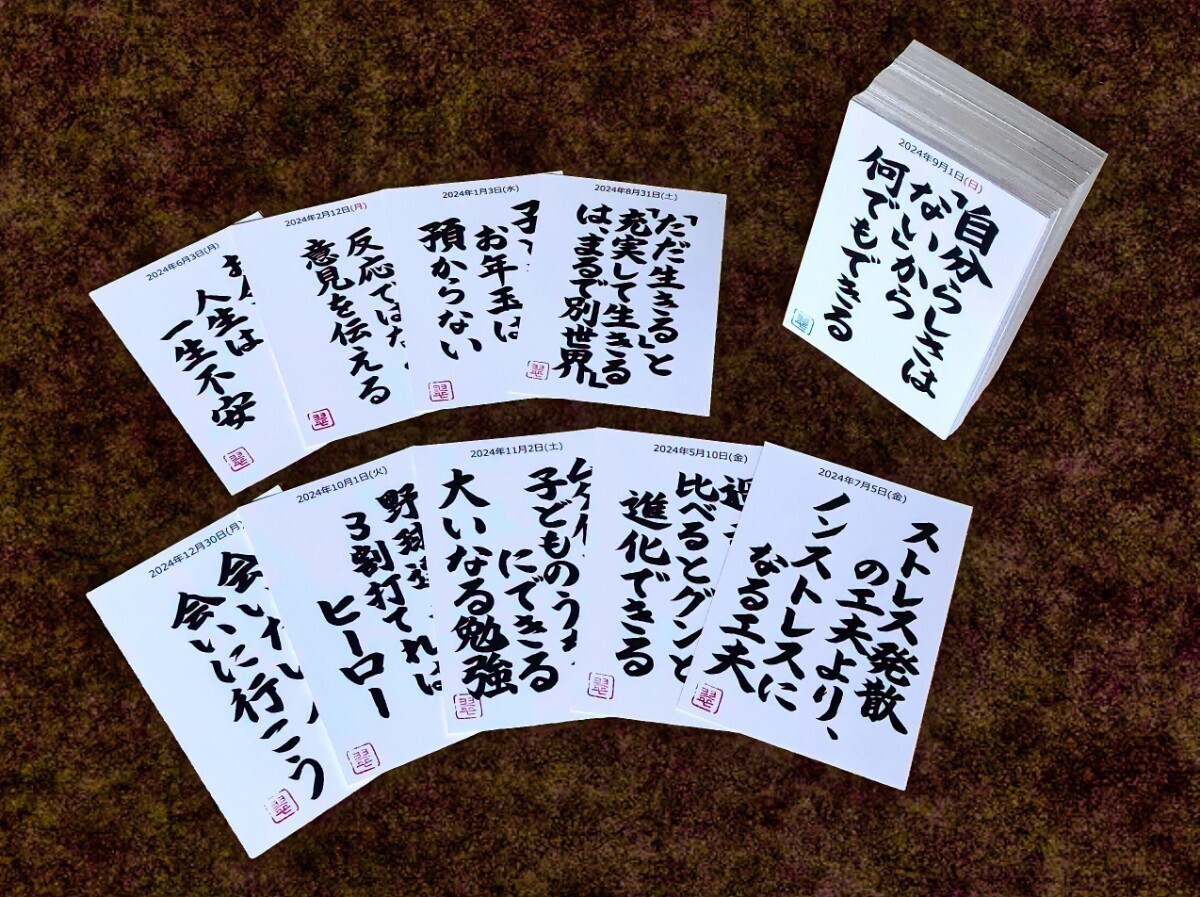 2024年6月3日(月)
人生は
一生不安
2024年2月12日(月)
反応ではな
意見を伝える
2024年1月3日(水)
子
お年玉は
預からない
2024年8月31日(土)
「ただ生きる」と
「充実して生きる」
は、まるで別世界
2024年9月1日(日)
「自分らしさは
ない」から
何でもできる
2024年12月30日(月)
会いたい人
会いに行こう
2024年10月1日(火)
野球選
3割打てれば
ヒーロー
2024年11月2日(土)
子どものうち
にできる
大いなる勉強
2024年5月10日(金)
過
比べるとグンと
進化できる
2024年7月5日(金)
ストレス発散
の工夫より、
ノンストレスに
なる工夫